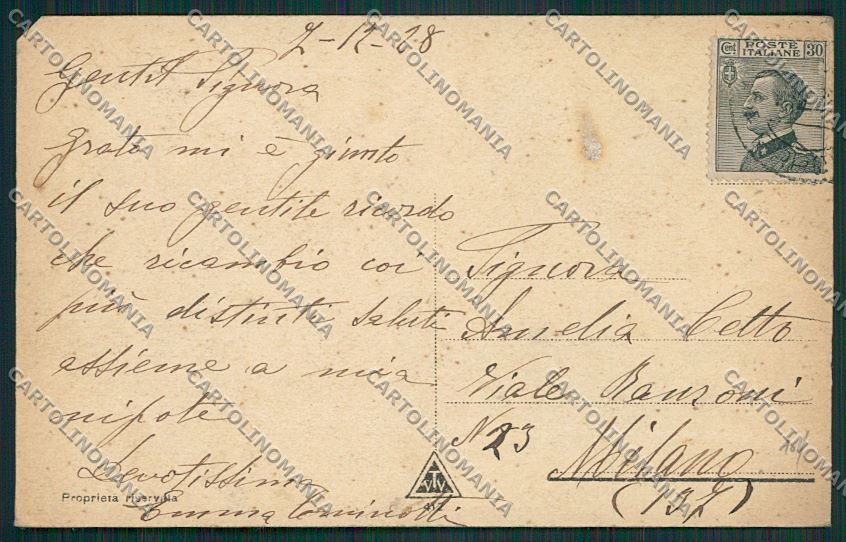 2-12-28
Gentil Signora
grato mi è giunto
il suo gentile ricordo
che ricambio coi
più distinti saluti
assieme a mia
nipote
Devotissima
Emma
Proprietà riservata
Cent POSTE ITALIANE 30
Signora
Amelia Cetto
Viale Ranzoni
N 23
Milano
(137)
CARTOLINOMANIA